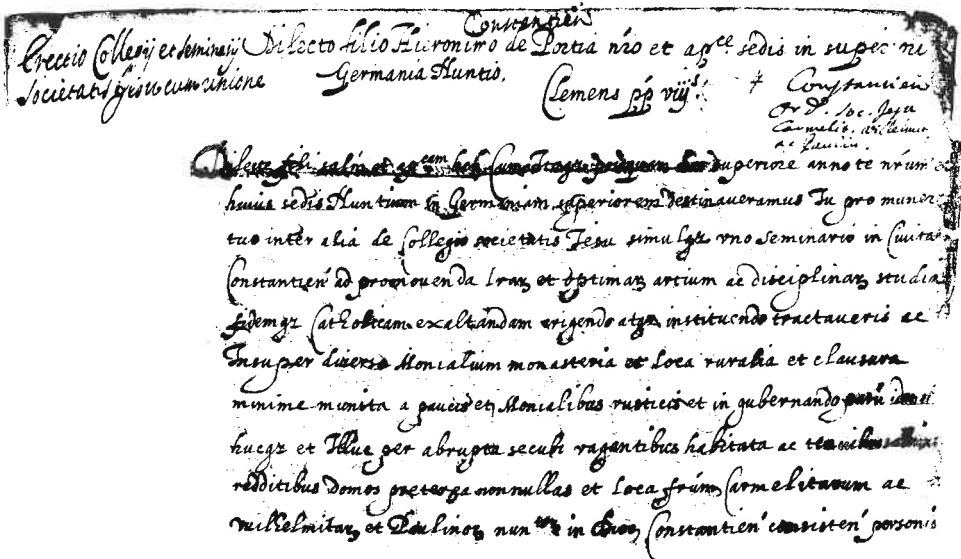 Constantien
Erectio Collegij et seminarij Dilecto filio Hieronimo de Portia nro et apce sedis in superiori
Societatis Jesu cum unione Germania Nuntio.
Clemens pp viijs
Constantien
Or D. Soc. Jesu
Carmelit.
ac
Dilecte fili salm et ap cam ben Cum itaqz superiore anno te nrum
huius sedis Nuntium in Germaniam superiorem destinaveramus Tu pro muner
tuo inter alia de Collegio societatis Jesu simulqz uno seminario in Civita
Constantien ad promovenda lrar et optimar artium ac disciplinar studia
fidemqz Catholicam exaltandam erigendo atqz instituendo tractaveris ac
Insuper diversa Monialium monasteria et loca ruralia et clausura
minime munita a paucis et Monialibus rusticis et in gubernando
hucqz et Illuc per abrupta seculi vagantibus habitata ac tenuibus
redditibus domos preterea nonnullas et loca frum Carmelitarum ac
Wilhelmitar et Paulinor nun in Constantien consisten personis